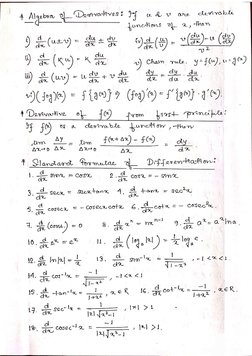 * Algebra of Derivatives: If u & v are derivable
functions of x, then
i) d/dx (u±v) = du/dx ± dv/dx  iv) d/dx (u/v) = v(du/dx) - u(dv/dx) / v²
ii) d/dx (Ku) = K du/dx  v) Chain rule, y = f(u), u = g(x)
iii) d/dx (uv) = u dv/dx + v du/dx  dy/dx = dy/du · du/dx
vi) (fog(x) = f{g(x)} ⇒ (fog)'(x) = f'{g(x)} · g'(x)
* Derivative of f(x) from first principle:
If f(x) is a derivable function, then
lim Δx→0 Δy/Δx = lim Δx→0 f(x+Δx) - f(x) / Δx = dy/dx
* Standard Formulae of Differentiation:
1. d/dx sinx = cosx  2. d/dx cosx = -sinx
3. d/dx secx = secxtanx  4. d/dx tanx = sec²x
5. d/dx cosecx = -cosecxcotx  6. d/dx cotx = -cosec²x
7. d/dx (const) = 0  8. d/dx xⁿ = nxⁿ⁻¹  9. d/dx aˣ = aˣ lna
10. d/dx eˣ = eˣ  11. d/dx (log_a |x|) = 1/x log_a e.
12. d/dx ln|x| = 1/x  13. d/dx sin⁻¹x = 1/√(1-x²), -1<x<1
14. d/dx cos⁻¹x = -1/√(1-x²), -1<x<1
15. d/dx tan⁻¹x = 1/(1+x²), x∈R  16. d/dx cot⁻¹x = -1/(1+x²), x∈R
17. d/dx sec⁻¹x = 1/(|x|√(x²-1)), |x|>1
18. d/dx cosec⁻¹x = -1/(|x|√(x²-1)), |x|>1.